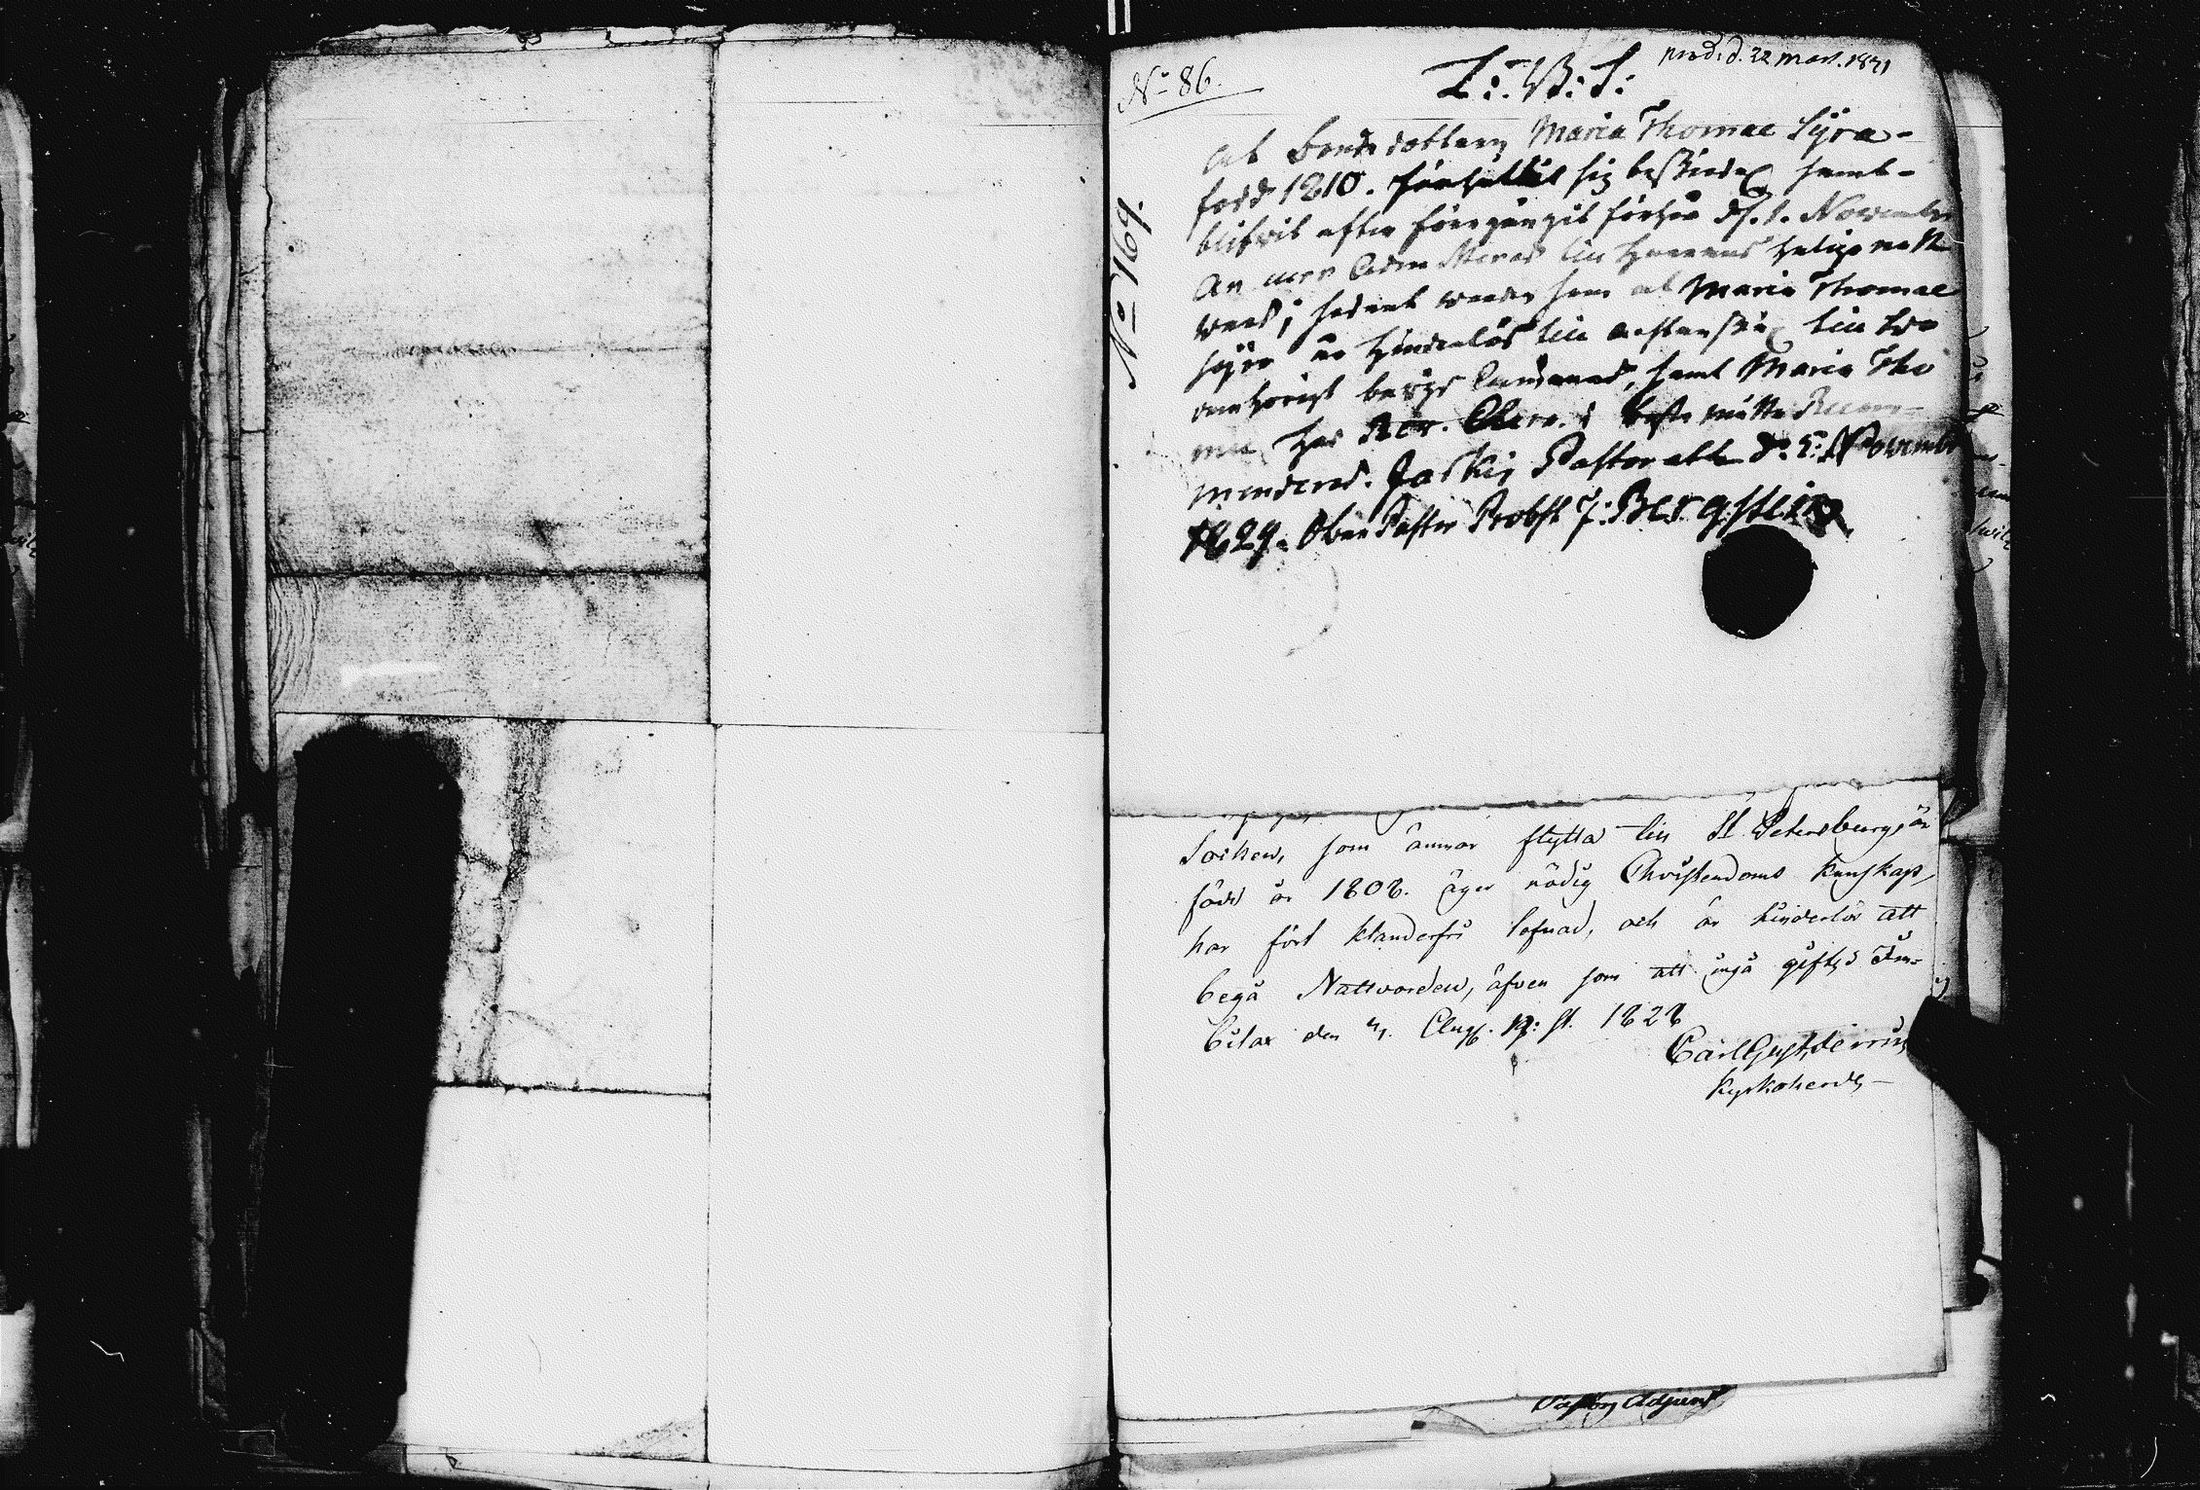 prod. d. 22 mart. 1831
No 86.
L: B: S:
No 169.
At bondedottern Maria Thomae Syra-
född 1810. förhållit sig beskedel. samt-
blifvit efter föregångit förhör d. 1. November
till Herrens helige natt
ward; sedant at Maria Thomae
Syra är hinderlös till ächtenskap till
samt Maria Tho
mae har i Recom-
menderad. Jaskis Pastorat d. 2: November
1829. Ober Pastor Probst J: Bergstein
Socken, som ämnar flytta till St Petersburg, är
född år 1808. äger nödig Christendoms kunskap,
har fört klanderfri lefnad, och är hinderlös att
begå Nattvarden, äfven som att ingå gifte; Im-
bilax den Aug. n: st. 1828
Carl Gust.
Kyrkoherde
Pastors Adjunct